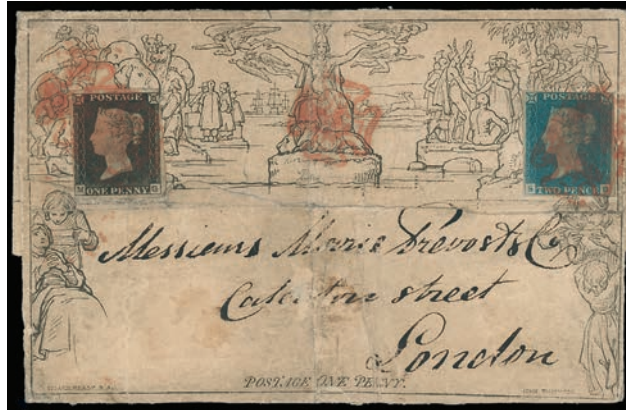 POSTAGE
ONE PENNY
POSTAGE
TWO PENCE
Messieurs Morris Prevost & Co
street
London
POSTAGE ONE PENNY.